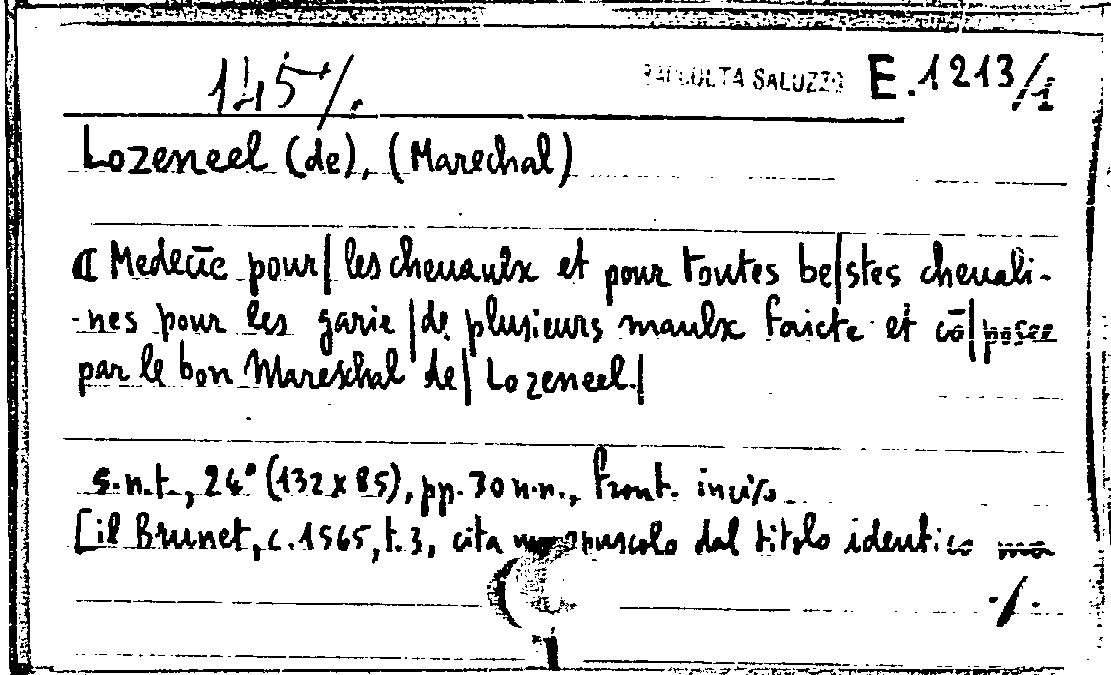 145 /.
RACCOLTA SALUZZO E.1213/1
Lozeneel (de), (Marechal)
⁌ Medecīe pour| les cheuaulx et pour toutes be|stes cheuali-
-nes pour les garie |de plusieurs maulx faicte et cō|posee
par le bon Mareschal de| Lozeneel.|
s.n.t., 24° (132x85), pp. 30 n.n., front. inciso.
[il Brunet, c. 1565, t. 3, cita un opuscolo dal titolo identico ma
./.